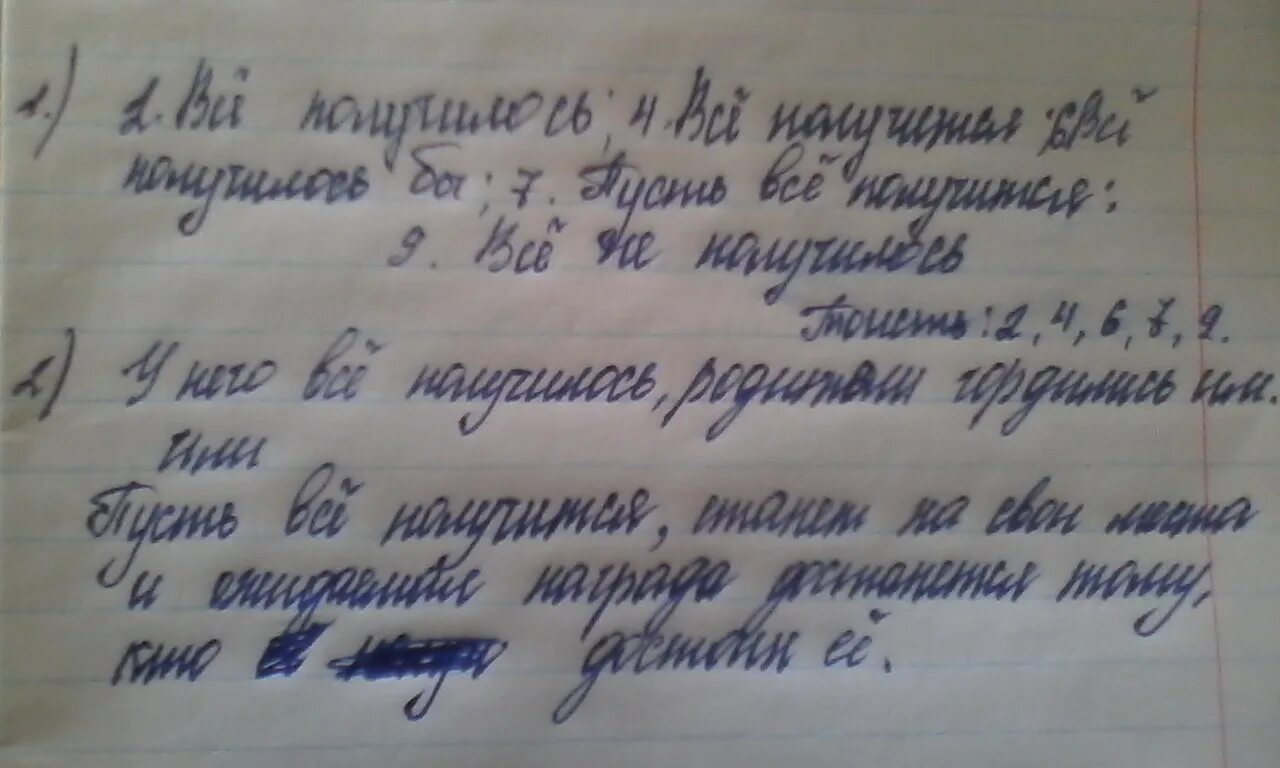 1.) 2. Всё получилось; 4. Всё получится; 6 Всё
получилось бы; 7. Пусть всё получится:
9. Всё не получилось
Тоисть: 2, 4, 6, 7, 9.
2) У него всё получилось, родители гордились им.
или
Пусть всё получится, станет на свои места
и ожидаемая награда достанется тому,
кто достоин её.